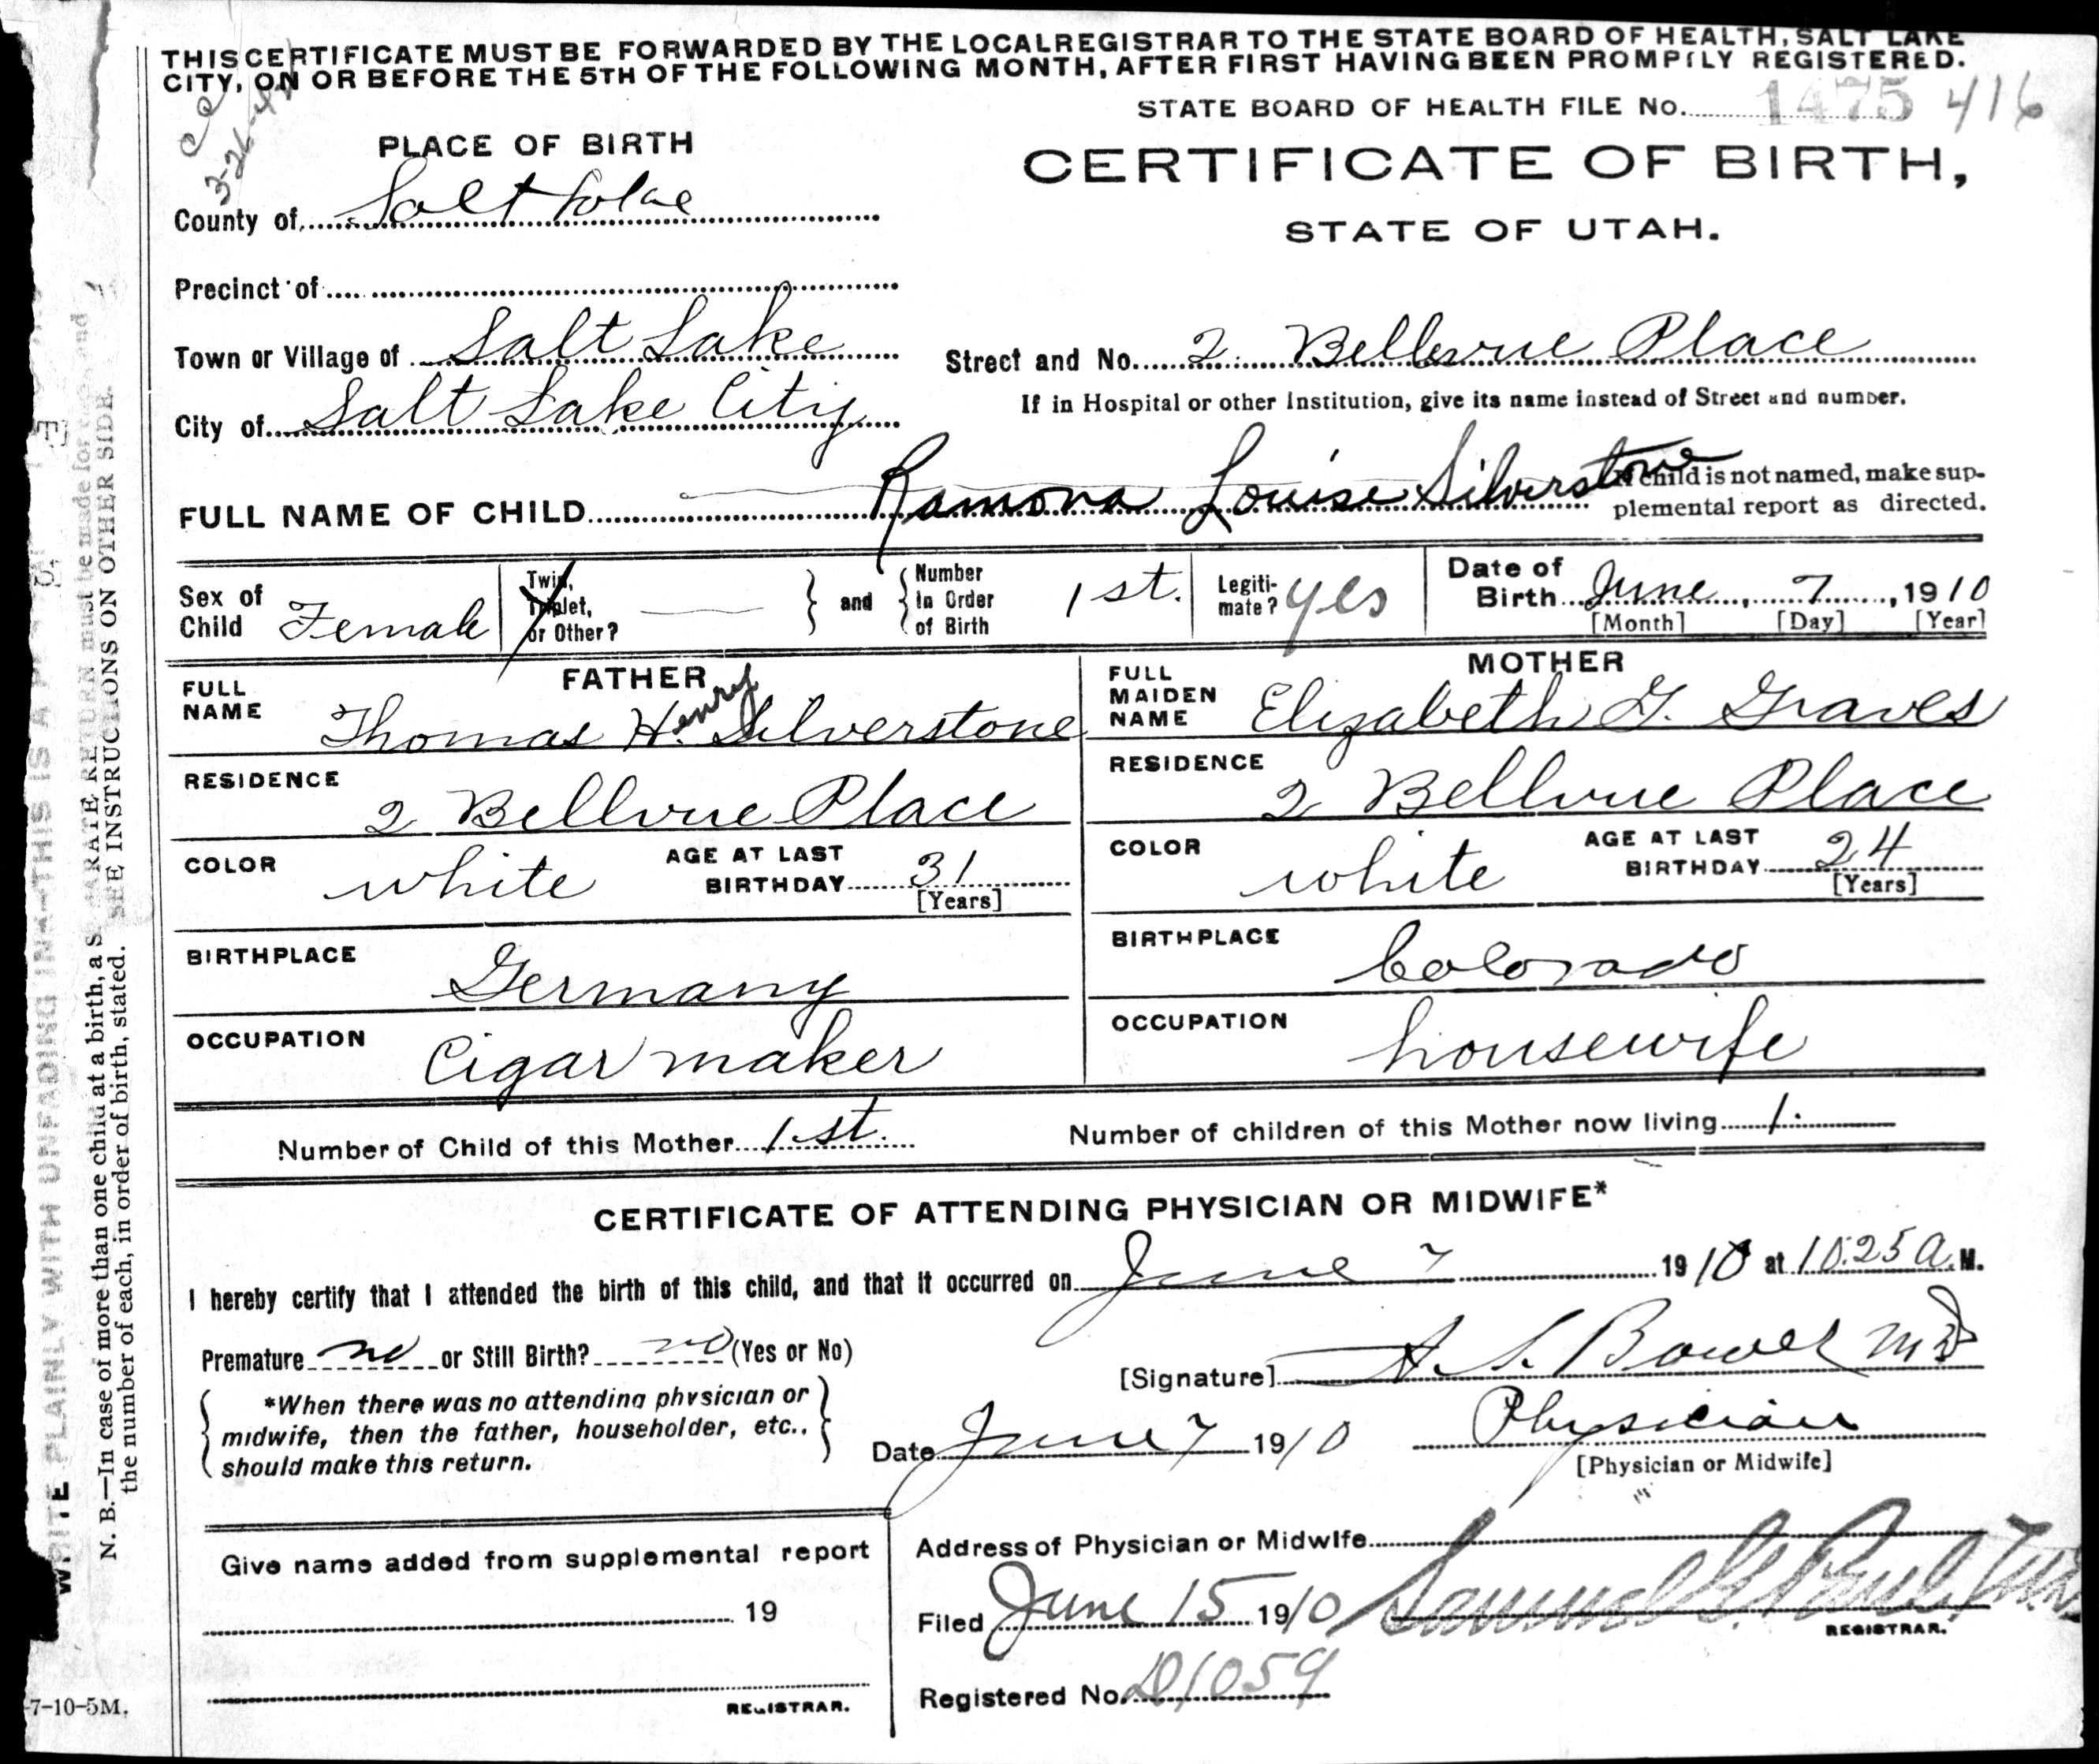 THIS CERTIFICATE MUST BE FORWARDED BY THE LOCAL REGISTRAR TO THE STATE BOARD OF HEALTH, SALT LAKE
CITY, ON OR BEFORE THE 5TH OF THE FOLLOWING MONTH, AFTER FIRST HAVING BEEN PROMPTLY REGISTERED.
STATE BOARD OF HEALTH FILE No. 1475 416
3-26-42
PLACE OF BIRTH
CERTIFICATE OF BIRTH,
STATE OF UTAH.
County of Salt Lake
Precinct of
Town or Village of Salt Lake
Street and No. 2 Bellevue Place
If in Hospital or other Institution, give its name instead of Street and number.
City of Salt Lake City
FULL NAME OF CHILD Ramona Louise Silverstone
If child is not named, make sup-
plemental report as directed.
Sex of Child Female
Twin, Triplet, or Other? and Number In Order of Birth 1st.
Legiti-mate? yes
Date of Birth June, 7, 1910
[Month] [Day] [Year]
FATHER
FULL NAME Thomas H. Henry Silverstone
RESIDENCE 2 Bellvue Place
COLOR white AGE AT LAST BIRTHDAY 31 [Years]
BIRTHPLACE Germany
OCCUPATION Cigar maker
MOTHER
FULL MAIDEN NAME Elizabeth G. Graves
RESIDENCE 2 Bellvue Place
COLOR white AGE AT LAST BIRTHDAY 24 [Years]
BIRTHPLACE Colorado
OCCUPATION housewife
Number of Child of this Mother 1st. Number of children of this Mother now living 1.
CERTIFICATE OF ATTENDING PHYSICIAN OR MIDWIFE*
I hereby certify that I attended the birth of this child, and that it occurred on June 7 1910 at 10:25 a. M.
Premature no or Still Birth? no (Yes or No)
[Signature] A. S. Bower MD
*When there was no attending physician or
midwife, then the father, householder, etc.,
should make this return.
Date June 7 1910 Physician
[Physician or Midwife]
Give name added from supplemental report
19
REGISTRAR.
Address of Physician or Midwife
Filed June 15 1910 Samuel G. Paul, M.D.
REGISTRAR.
Registered No. D1059
WRITE PLAINLY WITH UNFADING INK—THIS IS A
N. B.—In case of more than one child at a birth, a SEPARATE RETURN must be made for each and
the number of each, in order of birth, stated. SEE INSTRUCTIONS ON OTHER SIDE.
7-10-5M.